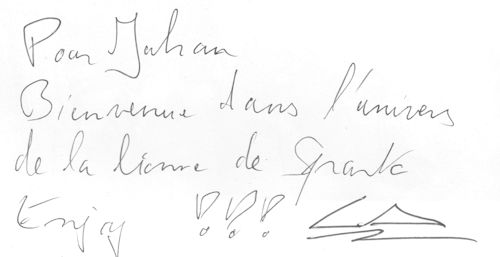 Pour Johan
Bienvenue dans l'univers
de la lionne de Sparte
Enjoy !!!